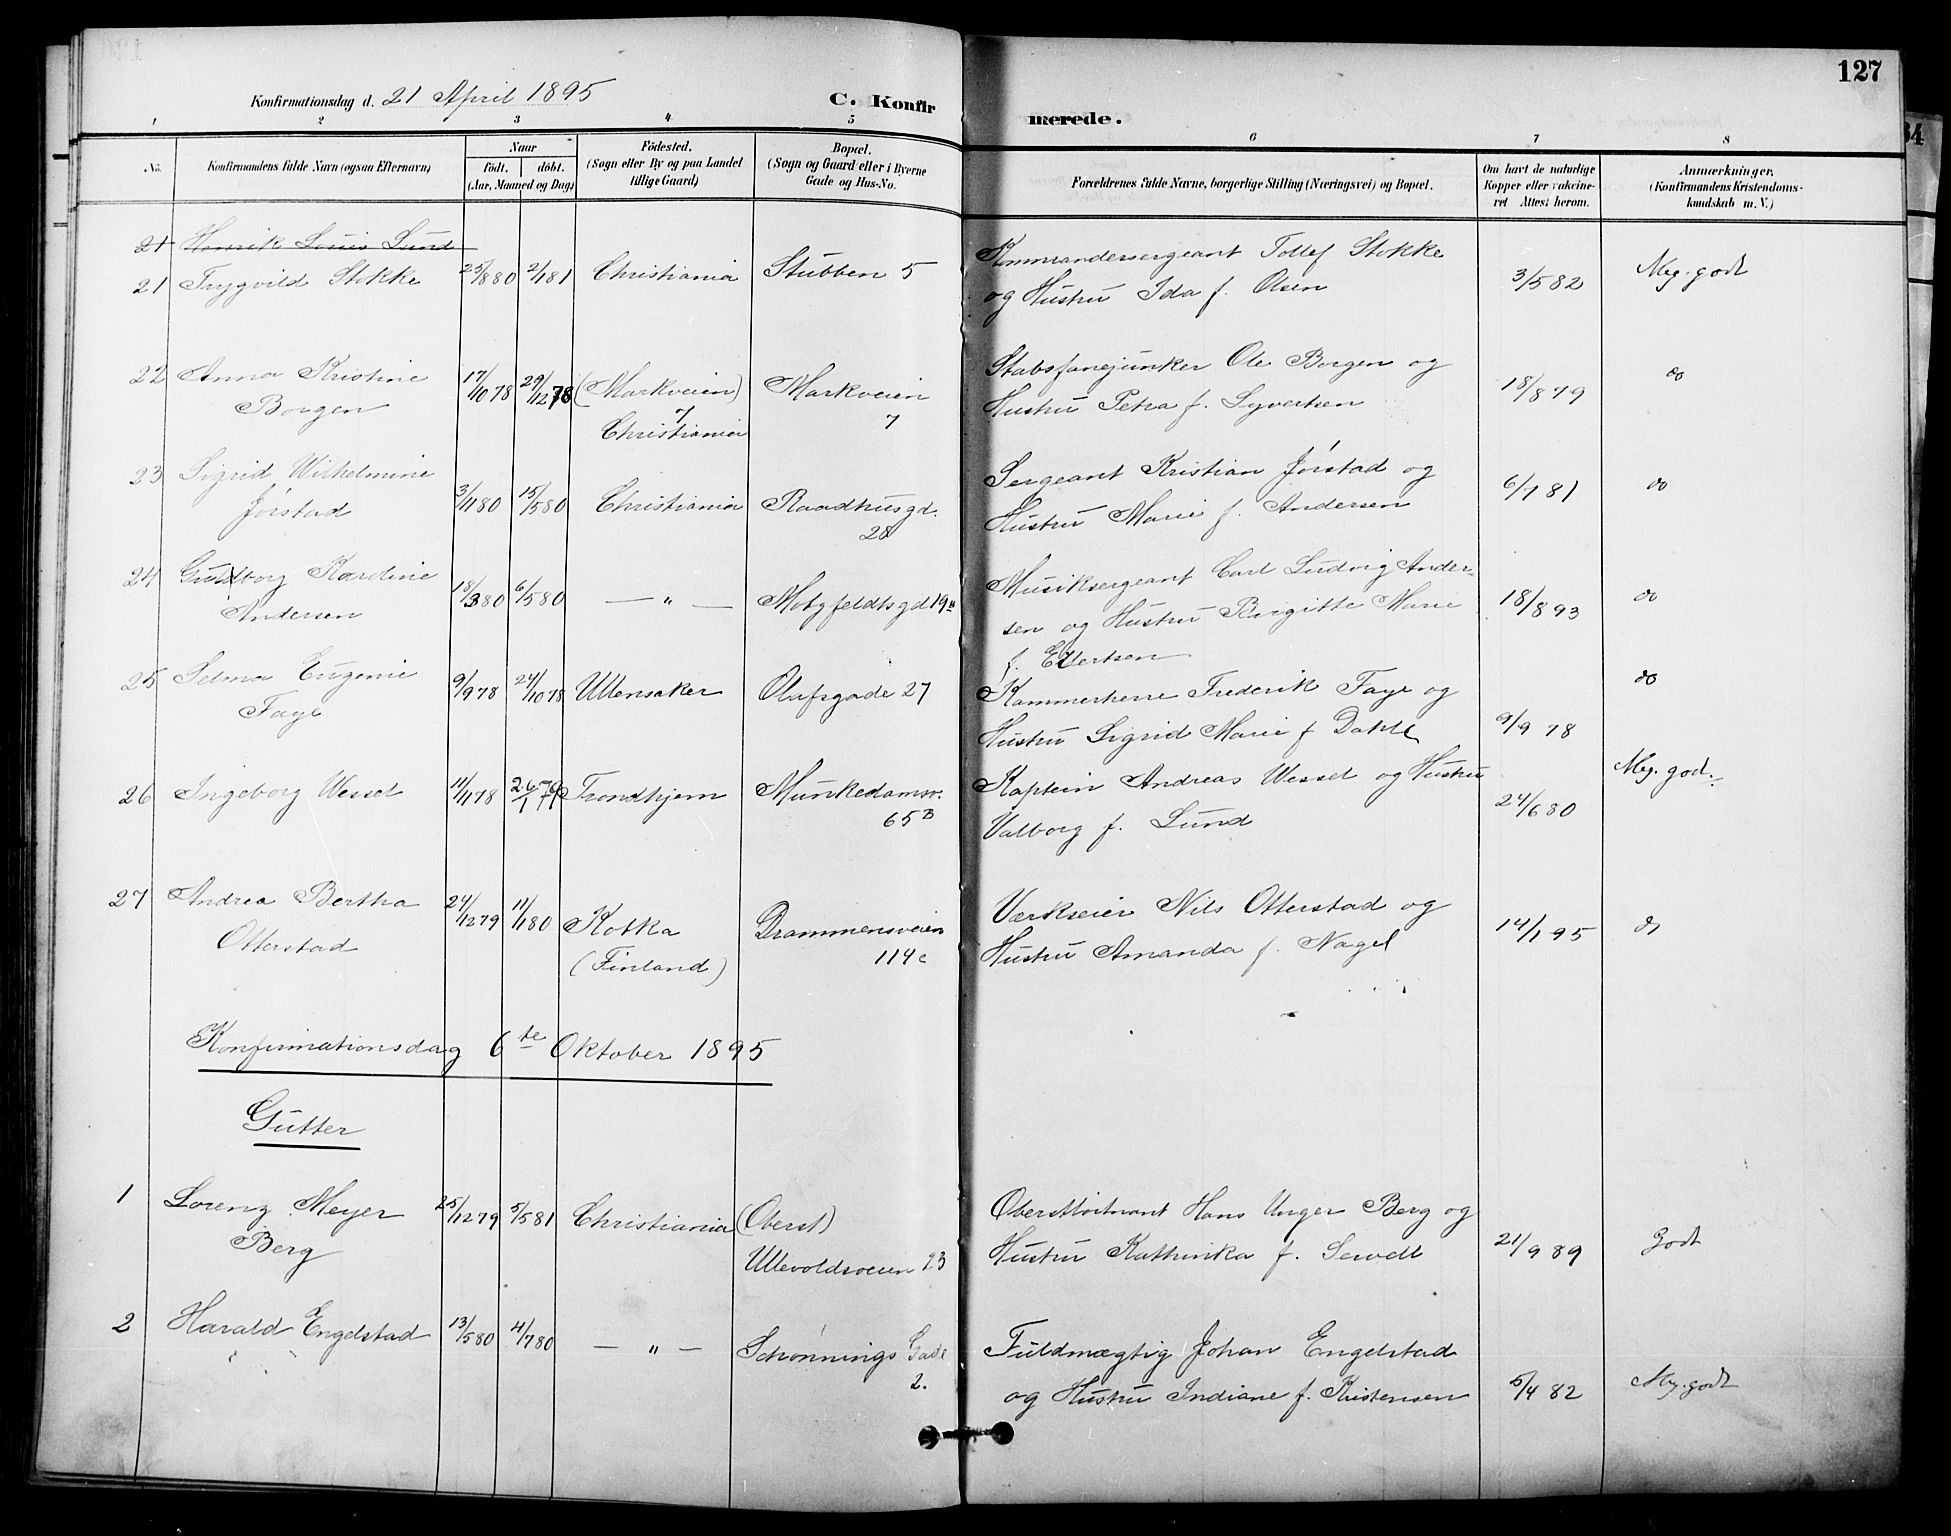 127
Konfirmationsdag d. 21 April 1895
C. Konfirmerede.
1 2 3 4 5 6 7 8
No.
Konfirmandens fulde Navn (ogsaa Efternavn)
Naar
født. døbt.
(Aar, Maaned og Dag)
Fødested.
(Sogn eller By og paa Landet
tillige Gaard)
Bopæl.
(Sogn og Gaard eller i Byerne
Gade og Hus-No.
Forældrenes fulde Navne, borgerlige Stilling (Næringsvei) og Bopæl.
Om havt de naturlige
Kopper eller vakcine-
ret Attest herom.
Anmærkninger,
(Konfirmandens Kristendoms-
kundskab m. V.)
21 Henrik Louis Lund
21 Trygvild Stokke 25/8 80 2/1 81 Christiania Stubben 5 Kommandersergeant Tollef Stokke
og Hustru Ida f. Olsen 3/5 82 Meg. godt
22 Anna Kristine
Borgen 17/10 78 29/12 78 (Markveien)
7
Christiania Markveien
7 Stabsfanejunker Ole Borgen og
Hustru Petra f. Syvertsen 18/8 79 do
23 Sigrid Wilhelmine
Jørstad 3/1 80 15/5 80 Christiania Raadhusgd.
28 Sergeant Kristian Jørstad og
Hustru Marie f. Andersen 6/7 81 do
24 Guldborg Karoline
Andersen 18/3 80 6/5 80 — " — Motzfeldtsgd 19 Musiksergeant Carl Ludvig Ander-
sen og Hustru Birgitte Marie
f. Ellertsen 18/8 93 do
25 Selma Eugenie
Faye 9/9 78 24/10 78 Ullensaker Olafsgade 27 Kammerherre Frederik Faye og
Hustru Sigrid Marie f Dahl 9/9 78 do
26 Ingeborg Wessel 11/1 78 Trondhjem Munkedamsv.
65 B Kaptein Andreas Wessel og Hustru
Valborg f. Lund 24/6 80 Meg. god.
27 Andrea Bertha
Otterstad 24/12 79 11/1 80 Kotka
(Finland) Drammensveien
114 c Værkseier Nils Otterstad og
Hustru Amanda f. Nagel 14/1 95 do
Konfirmationsdag 6te Oktober 1895
Gutter
1 Lorenz Meyer
Berg 25/12 79 5/5 81 Christiania (Oberst)
Ullevoldsveien 23 Oberstløitnant Hans Unger Berg og
Hustru Kathinka f. 21/9 89 Godt
2 Harald Engelstad 13/5 80 4/7 80 — " — Schønnings Gade
2. Fuldmægtig Johan Engelstad
og Hustru Indiane f. Kristensen 5/4 82 Mg. godt